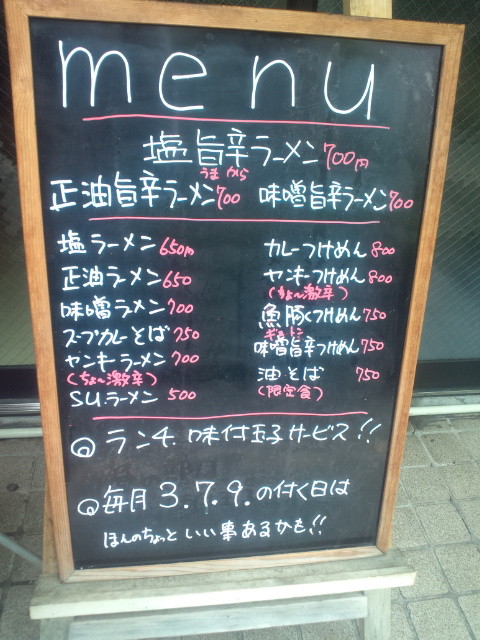 menu
塩旨辛ラーメン700円
うま から
正油旨辛ラーメン700 味噌旨辛ラーメン700
塩ラーメン650円
正油ラーメン650
味噌ラーメン700
スープカレーそば750
ヤンキーラーメン700
(ちょ〜激辛)
SUラーメン500
カレーつけめん800
ヤンキーつけめん800
(ちょ〜激辛)
魚豚つけめん750
ギョトン
味噌旨辛つけめん750
油そば 750
(限定食)
◎ランチ.味付玉子サービス!!
◎毎月3.7.9.の付く日は
ほんのちょっといい事あるかも!!